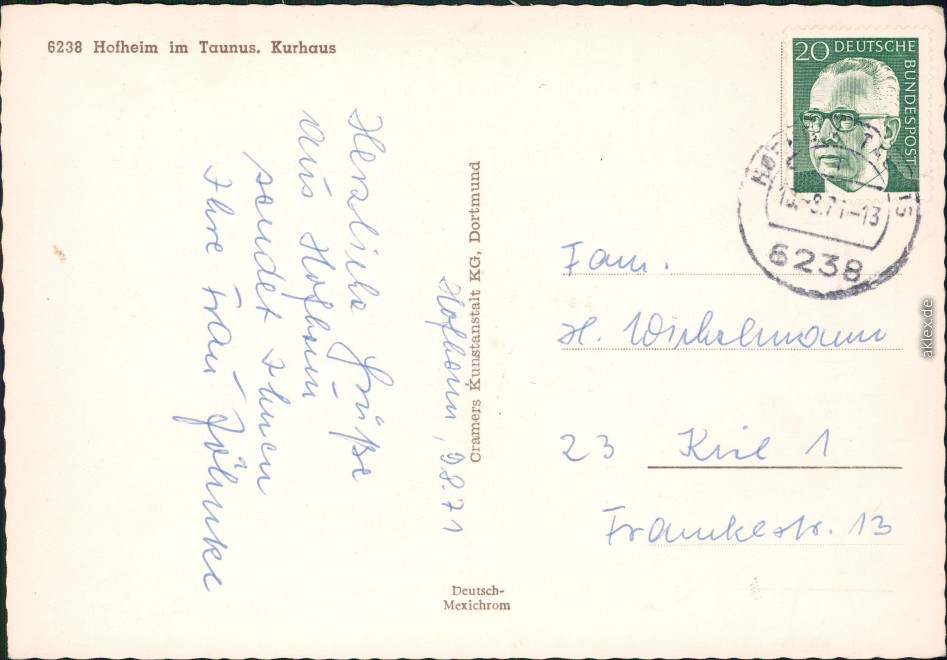 6238 Hofheim im Taunus. Kurhaus
20 DEUTSCHE
BUNDESPOST
6238
Hofheim, 9.8.71
Herzliche Grüße
aus Hofheim
sendet Ihnen
Ihre Frau Jöhnke
Cramers Kunstanstalt KG, Dortmund
Deutsch-
Mexichrom
Fam.
H. Wichelmann
23 Kiel 1
Frankestr. 13
aklex.de